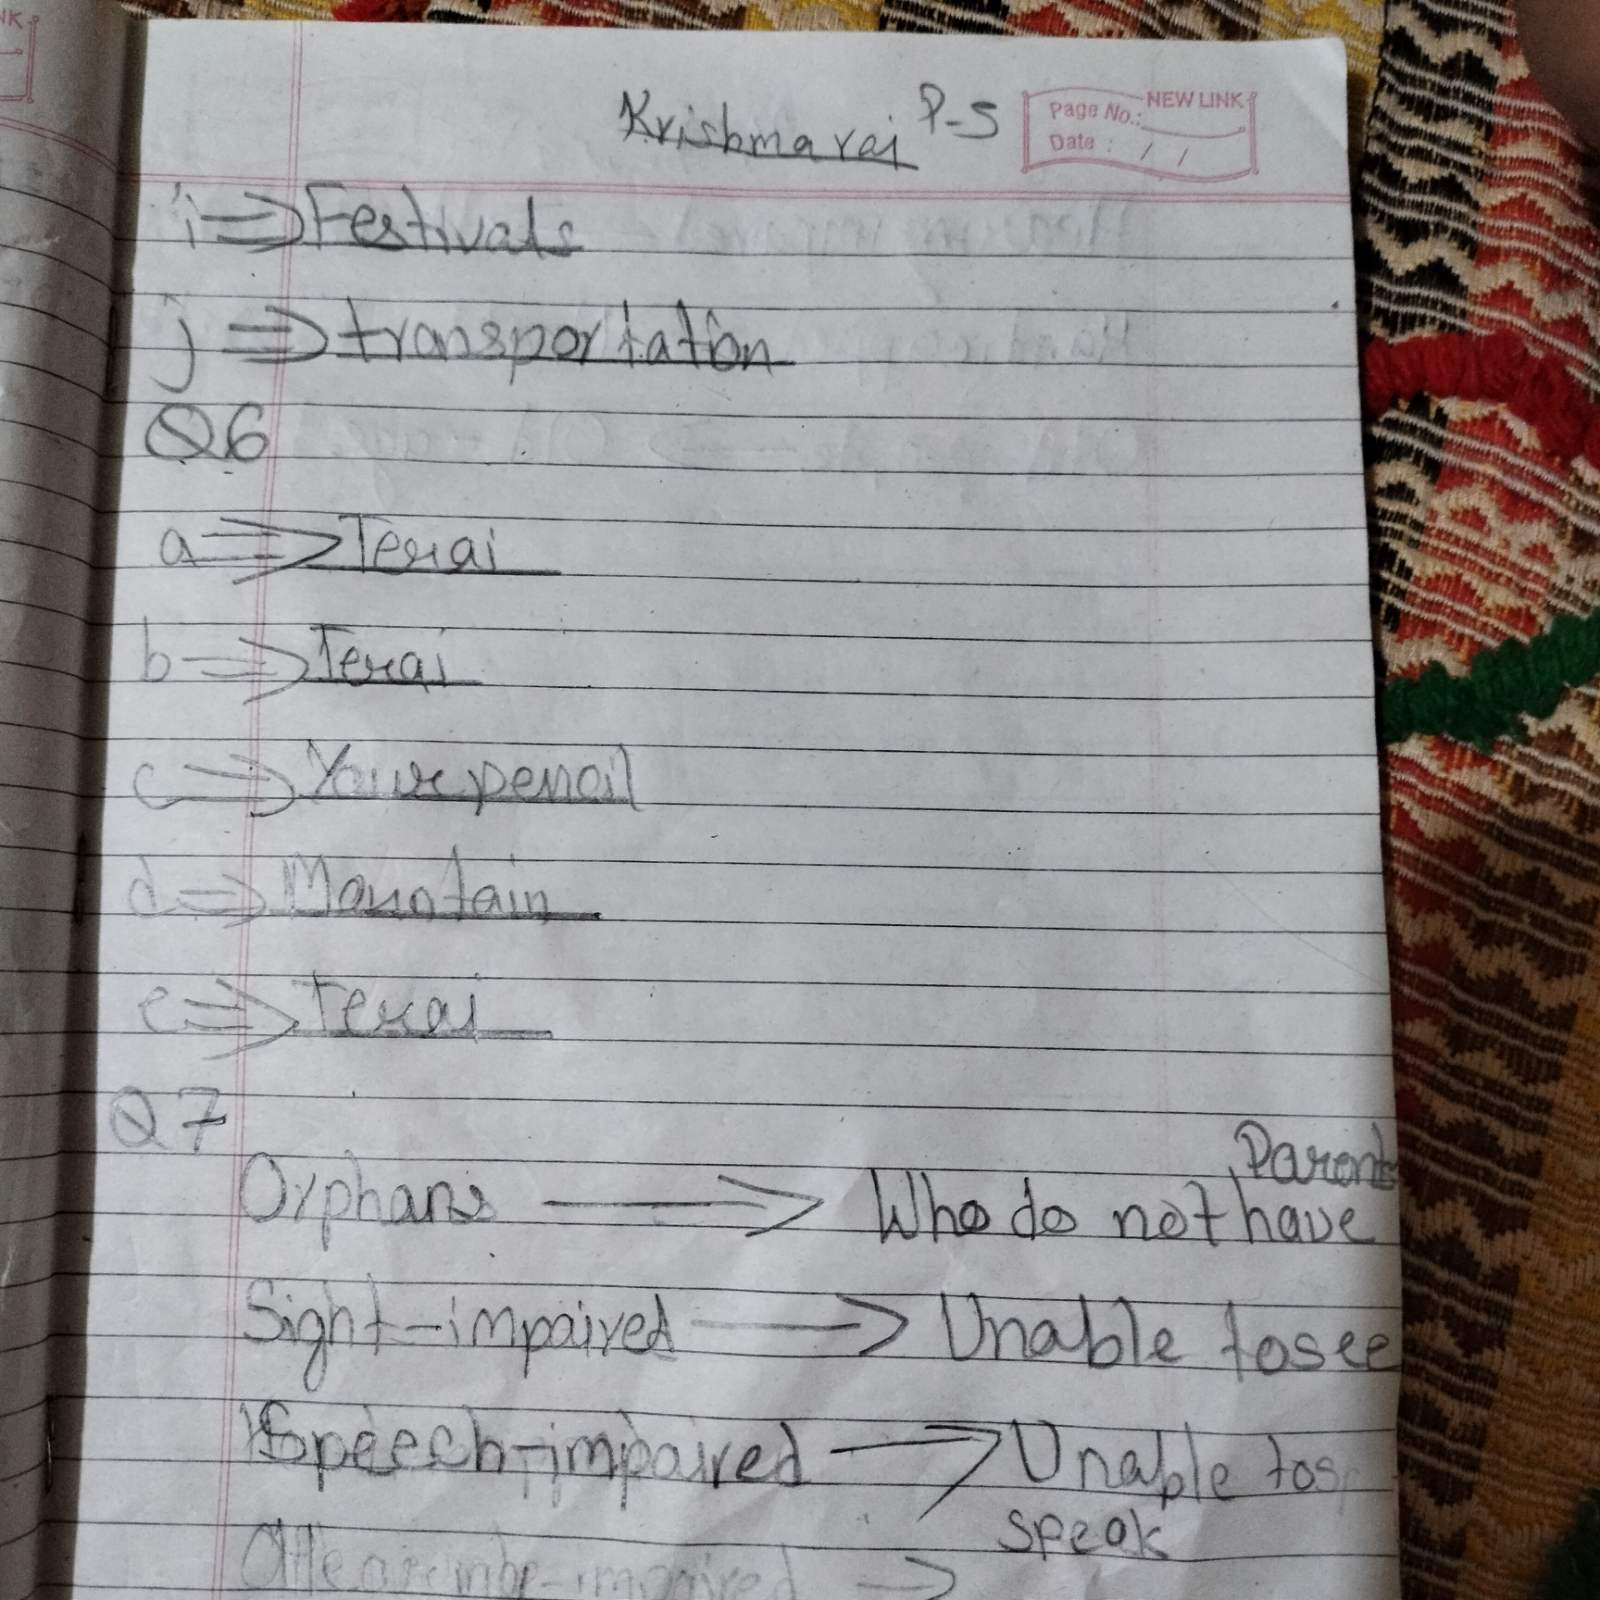 Krishmaraj P-5
NEW LINK
Page No.:
Date : / /
i ⇒ Festivals
j ⇒ transportation
Q6
a ⇒ Terai
b ⇒ Terai
c ⇒ Your pencil
d ⇒ Mountain
e ⇒ Terai
Q7
Parents
Orphans → Who do not have
Sight-impaired → Unable to see
Speech-impaired → Unable to s
speak
impaired →